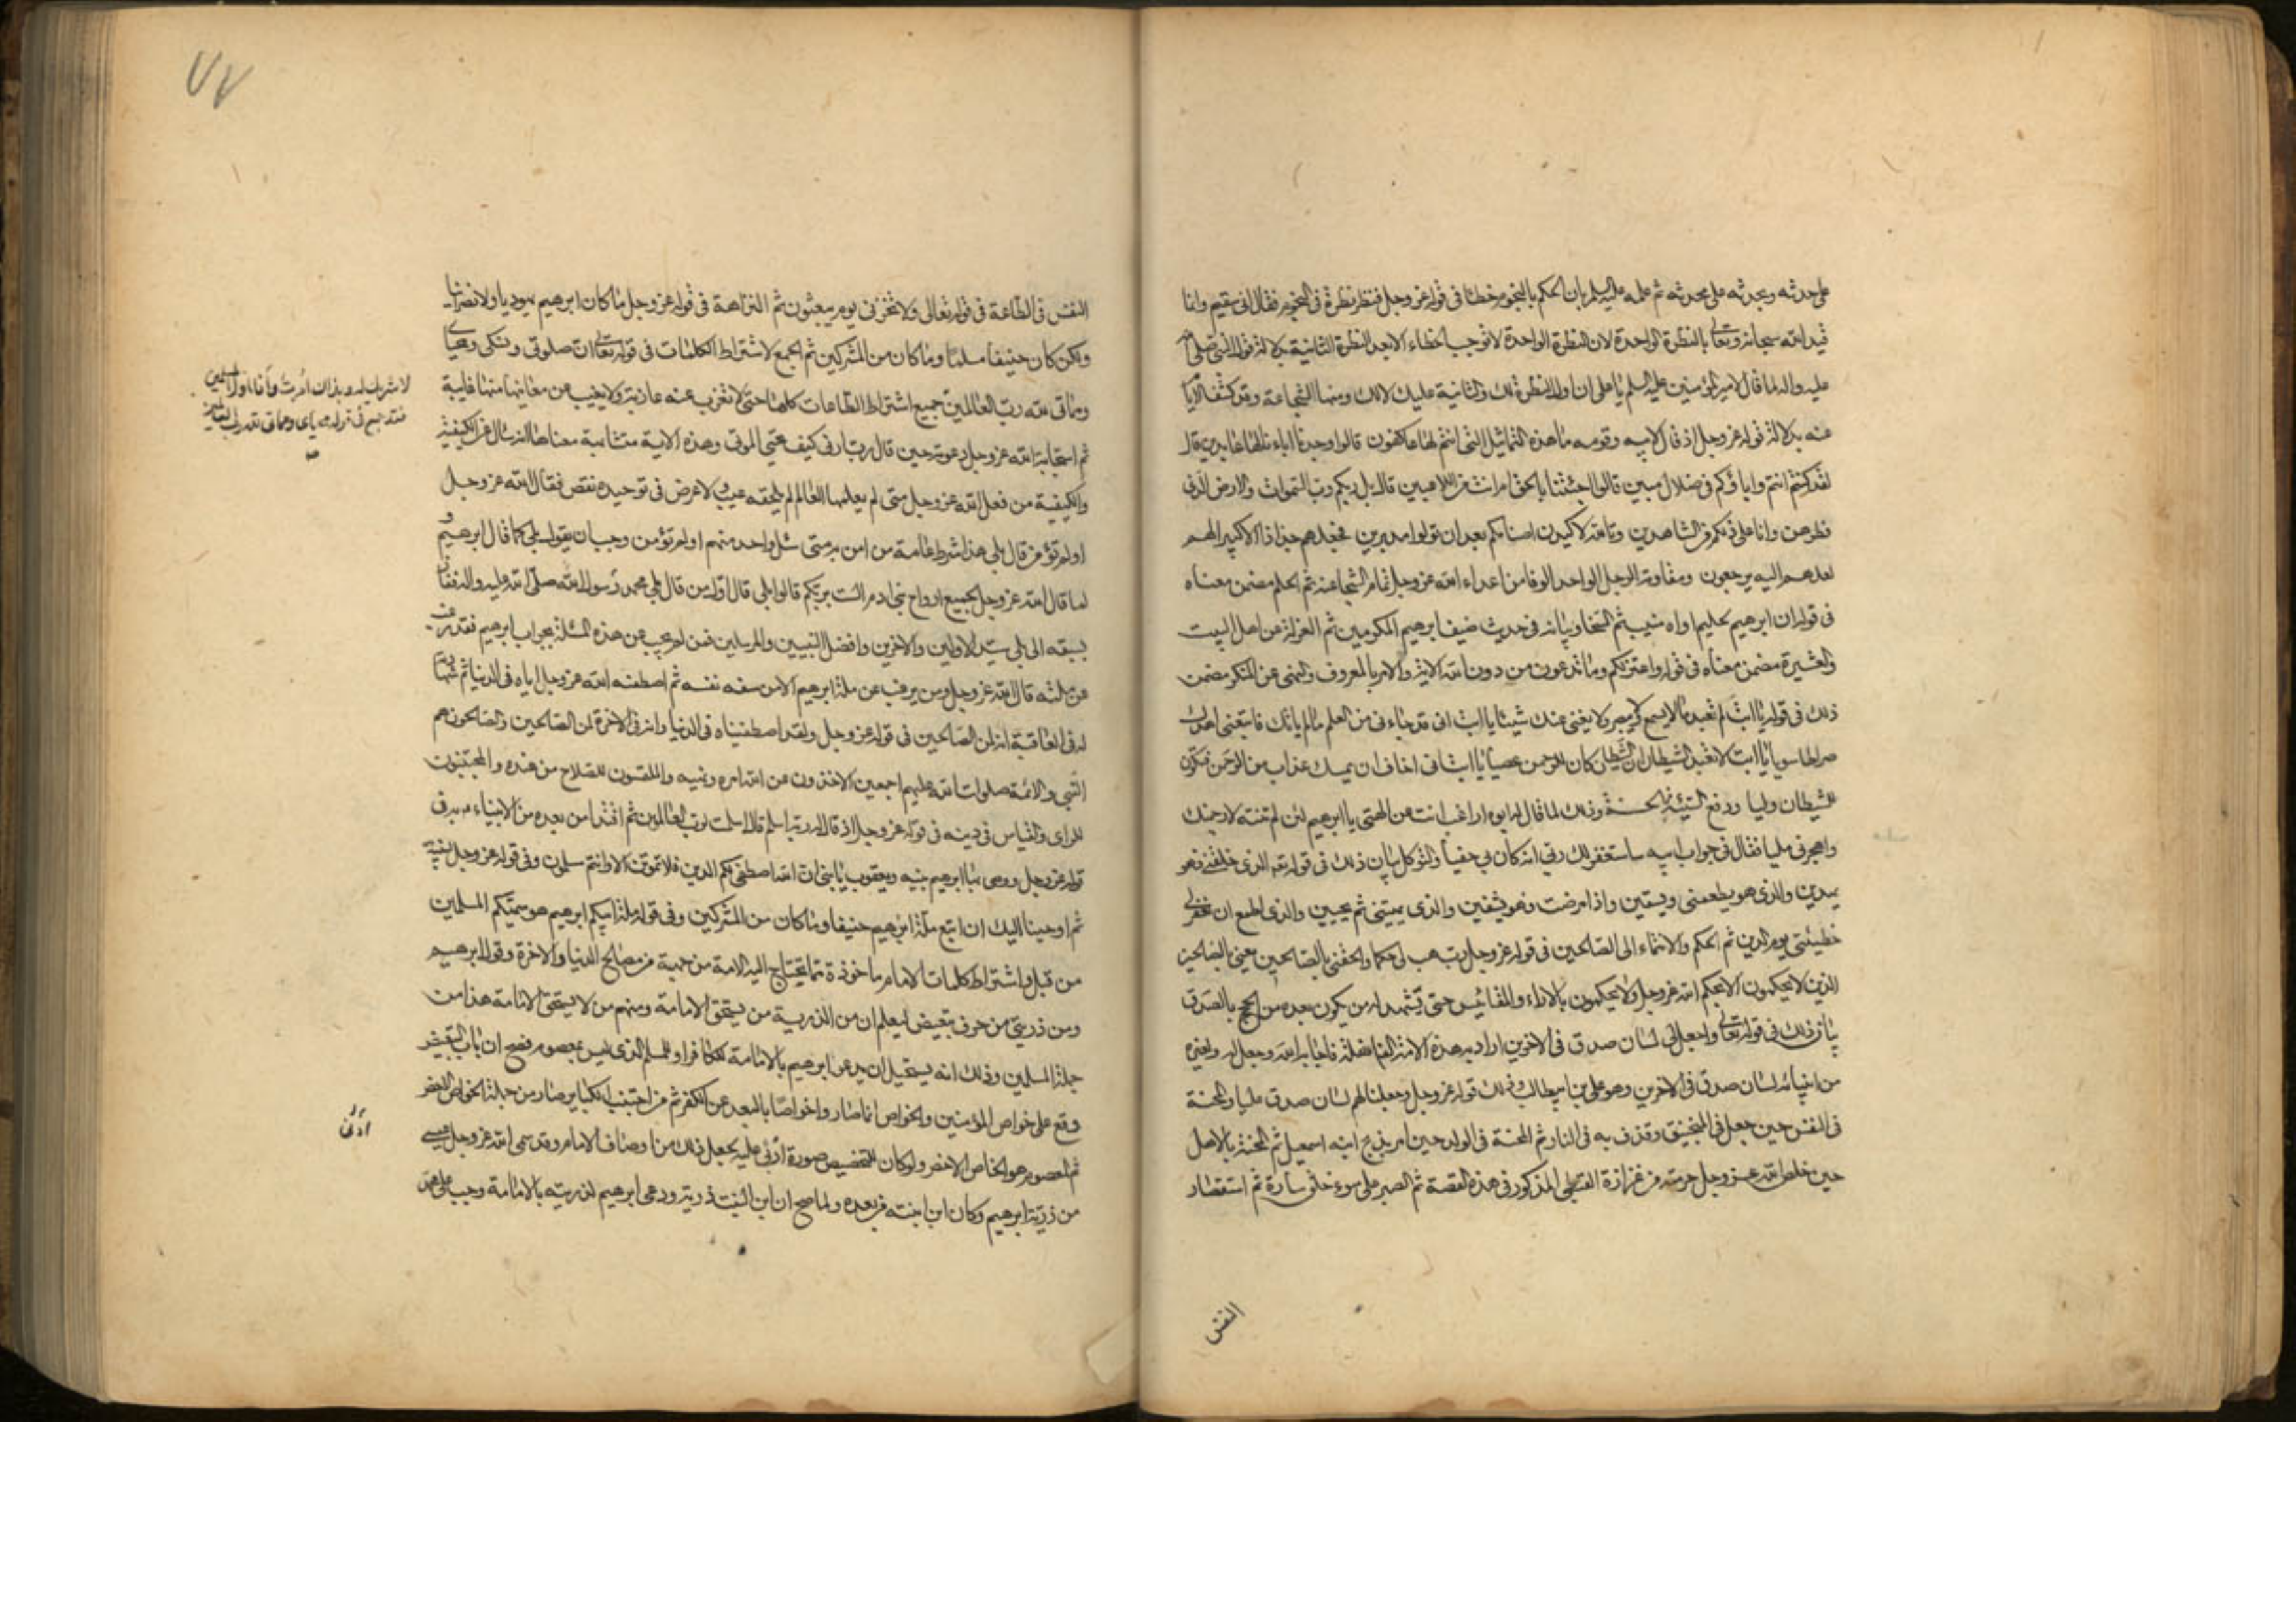 على حدثه وبحدثه على محدثه ثم علمه عليه السلم بان الحكم بالنجوم خطاء في قوله عز وجل فنظر نظرة في النجوم فقال اني سقيم وانما
قيد الله سبحانه وتعالى بالنظرة الواحدة لان النظرة الواحدة لا توجب الخطاء الا بعد النظرة الثانية بدلالة قول النبي صلى الله
عليه واله لما قال لامير المؤمنين عليه السلم يا على ان اول النظرة لك والثانية عليك لا لك ومنها الشجاعة وقد كشفت الايام
عنه بدلالة قوله عز وجل اذ قال لابيه وقومه ما هذه التماثيل التي انتم لها عاكفون قالوا وجدنا اباءنا لها عابدين قال
لقد كنتم انتم واباؤكم في ضلال مبين قالوا اجئتنا بالحق ام انت من اللاعبين قال بل ربكم رب السموات والارض الذي
فطرهن وانا على ذلكم من الشاهدين وتالله لاكيدن اصنامكم بعد ان تولوا مدبرين فجعلهم جذاذا الا كبيرا لهم
لعلهم اليه يرجعون ومقاومة الرجل الواحد الوفا من اعداء الله عز وجل تمام الشجاعة ثم الحلم مضمن معناه
في قوله ان ابرهيم لحليم اواه منيب ثم السخا وبيانه في حديث ضيف ابرهيم المكرمين ثم العزلة عن اهل البيت
والعشيرة مضمن معناه في قوله واعتزلكم وما تدعون من دون الله الاية والامر بالمعروف والنهي عن المنكر مضمن
ذلك في قوله يا ابت لم تعبد ما لا يسمع ولا يبصر ولا يغني عنك شيئا يا ابت اني قد جاءني من العلم ما لم ياتك فاتبعني اهدك
صراطا سويا يا ابت لا تعبد الشيطان ان الشيطان كان للرحمن عصيا يا ابت اني اخاف ان يمسك عذاب من الرحمن فتكون
للشيطان وليا ودفع السيئة بالحسنة وذلك لما قال له ابوه اراغب انت عن الهتي يا ابرهيم لئن لم تنته لارجمنك
واهجرني مليا فقال في جواب ابيه ساستغفر لك ربي انه كان بي حفيا والتوكل بيان ذلك في قوله تعه الذي خلقني فهو
يهدين والذي هو يطعمني ويسقين واذا مرضت فهو يشفين والذي يميتني ثم يحيين والذي اطمع ان يغفر لي
خطيئتي يوم الدين ثم الحكم والانتماء الى الصالحين في قوله عز وجل رب هب لي حكما والحقني بالصالحين يعني بالصالحين
الذين لا يحكمون الا بحكم الله عز وجل ولا يحكمون بالاراء والمقائيس حتى يشهد له من يكون بعده من الحجج بالصدق
بيان ذلك في قوله تعالى واجعل لي لسان صدق في الاخرين اراد به هذه الامة الفاضلة فاجابه الله وجعل له ولغيره
من انبيائه لسان صدق في الاخرين وهو علي بن ابيطالب وذلك قوله عز وجل وجعلنا لهم لسان صدق عليا والمحنة
في النفس حين جعل في المنجنيق وقذف به في النار ثم المحنة في الولد حين امر بذبح ابنه اسمعيل ثم المحنة بالاهل
حين خلص الله عز وجل حرمته من عزازة القبطي المذكور في هذه القصة ثم الصبر على سوء خلق سارة ثم استقصار
النفس
٧٧
النفس في الطاعة في قوله تعالى ولا تخزني يوم يبعثون ثم النزاهة في قوله عز وجل ما كان ابرهيم يهوديا ولا نصرانيا
ولكن كان حنيفا مسلما وما كان من المشركين ثم الجمع لاشتراط الكلمات في قوله تعالى ان صلوتي ونسكي ومحياي
ومماتي لله رب العالمين جميع اشتراط الطاعات كلها حتى لا تغرب عنه عازبة ولا يغيب عن معانيها منها غايبة
ثم استجابة الله عز وجل دعوته حين قال رب ارني كيف تحيي الموتى وهذه الاية متشابهة معناها انه سال عن الكيفية
والكيفية من فعل الله عز وجل متى لم يعلمها العالم لم يلحقه عيب ولا عرض في توحيده نقص فقال الله عز وجل
اولم تؤمن قال بلى هذا شرط عامة من امن به متى سئل واحد منهم اولم تؤمن وجب ان يقول بلى كما قال ابرهيم
لما قال الله عز وجل لجميع ارواح بني ادم الست بربكم قالوا بلى قال اول من قال بلى محمد رسول الله صلى الله عليه واله فصار
بسبقه الى بلى سيد الاولين والاخرين وافضل النبيين والمرسلين فمن لم يجب عن هذه المسئلة بجواب ابرهيم فقد رغب
عن ملته قال الله عز وجل ومن يرغب عن ملة ابرهيم الا من سفه نفسه ثم اصطفه الله عز وجل اياه في الدنيا ثم شهادته
له في العاقبة انه لمن الصالحين في قوله عز وجل ولقد اصطفيناه في الدنيا وانه في الاخرة لمن الصالحين والصالحون هم
النبي والائمة صلوات الله عليهم اجمعين الاخذون عن الله امره ونهيه والملتمسون للصلاح من عنده والمجتنبون
للراي والقياس في دينه في قوله عز وجل اذ قال له ربه اسلم قال اسلمت لرب العالمين ثم اقتدا من بعده من الانبياء به في
قوله عز وجل ووصى بها ابرهيم بنيه ويعقوب يا بني ان الله اصطفى لكم الدين فلا تموتن الا وانتم مسلمون وفي قوله عز وجل لنبيه
ثم اوحينا اليك ان اتبع ملة ابرهيم حنيفا وما كان من المشركين وفي قوله ملة ابيكم ابرهيم هو سميكم المسلمين
من قبل واشتراط كلمات الامام ماخوذة مما تحتاج اليه الامة من جهة من مصالح الدنيا والاخرة وقول ابرهيم
ومن ذريتي من حرف تبعيض ليعلم ان من الذرية من يستحق الامامة ومنهم من لا يستحق الامامة هذا من
جملة المسلمين وذلك انه يستحيل ان يدعو ابرهيم بالامامة للكافر او للمسلم الذي ليس بمعصوم فصح ان باب التبعيض
وقع على خواص المؤمنين والخواص انما صاروا خواصا بالبعد عن الكفر ثم من اجتنب الكبائر صار من جملة الخواص اخص
ثم المعصوم هو الخاص الاخص ولو كان للتخصيص صورة ادنى عليه لجعل ذلك من اوصاف الامام وقد سمى الله عز وجل عيسى
من ذرية ابرهيم وكان ابن ابنته من بعده ولما صح ان ابن البنت ذرية ودعى ابرهيم لذريته بالامامة وجب على محمد
لا شريك له وبذلك امرت وانا اول المسلمين
فقد جمع في قوله محياي ومماتي لله رب العالمين